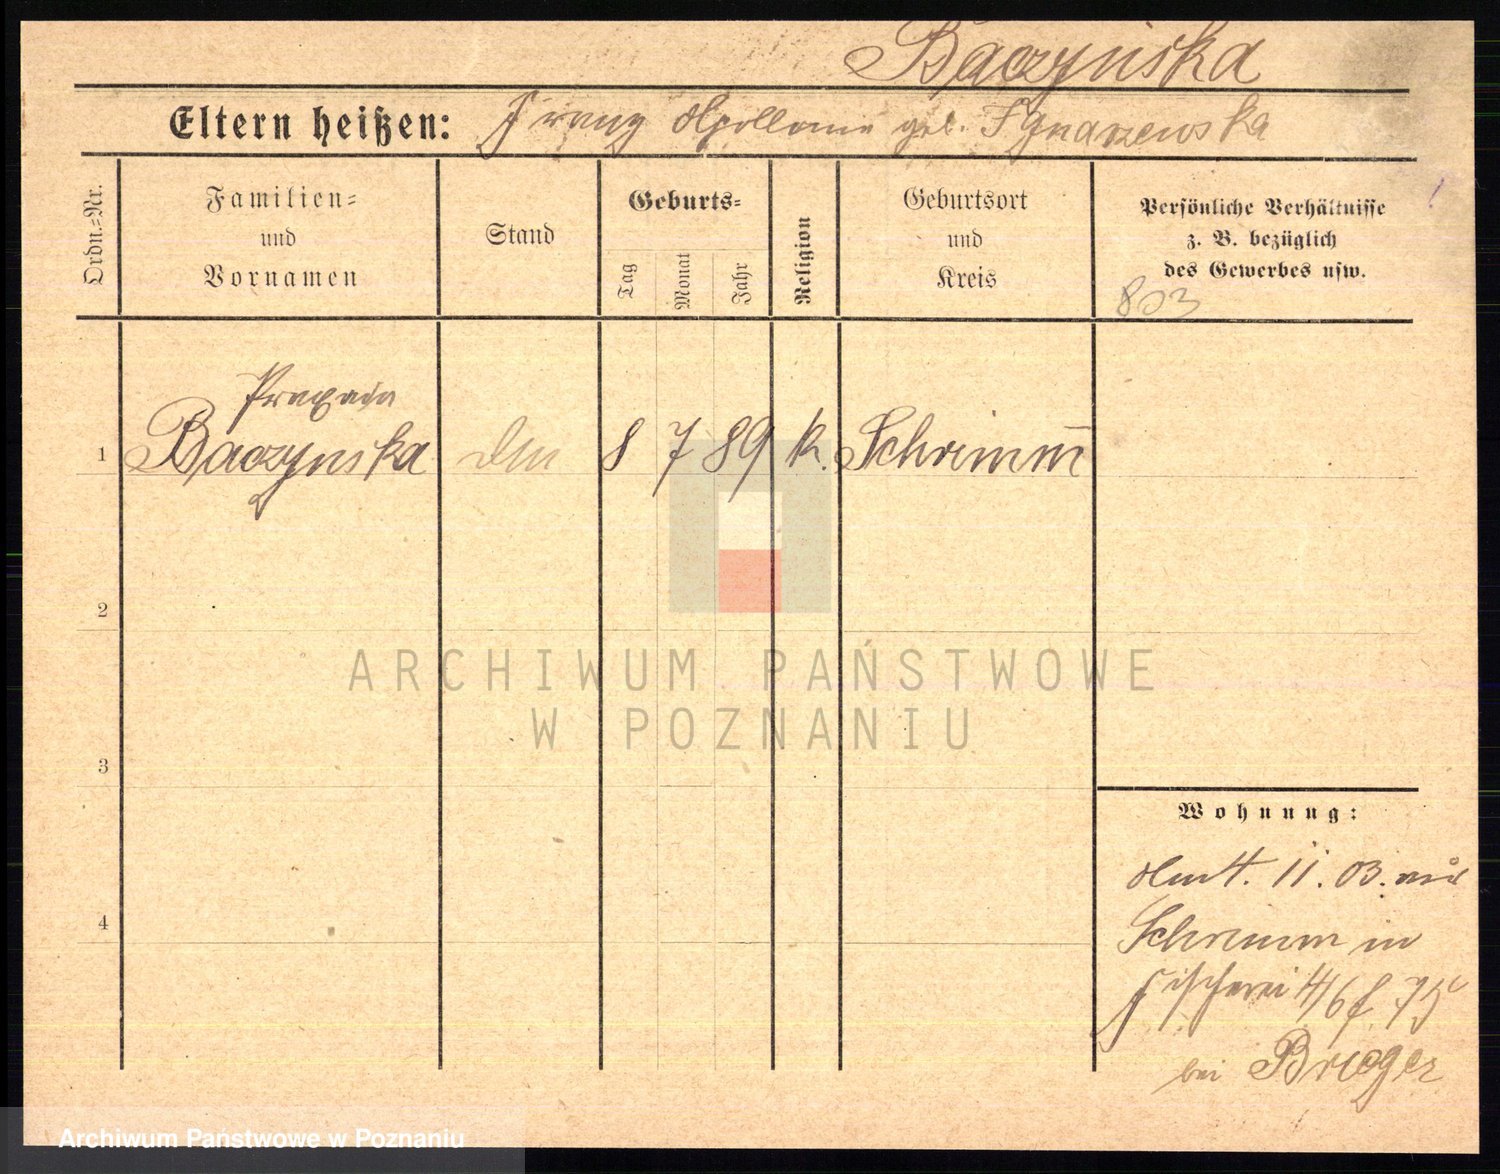 Baczyńska
Eltern heißen: Franz Apollonia geb. Ignaszewska
Ordn.-Nr.
Familien-
und
Vornamen
Stand
Geburts-
Tag
Monat
Jahr
Religion
Geburtsort
und
Kreis
Persönliche Verhältnisse
z. B. bezüglich
des Gewerbes usw.
803
Praxeda
1 Baczynska 8 7 89 k. Schrimm
2
3
4
ARCHIWUM PAŃSTWOWE
W POZNANIU
Wohnung:
11. 03.
Schrimm in
Fischerei 4/6
bei Brieger
Archiwum Państwowe w Poznaniu